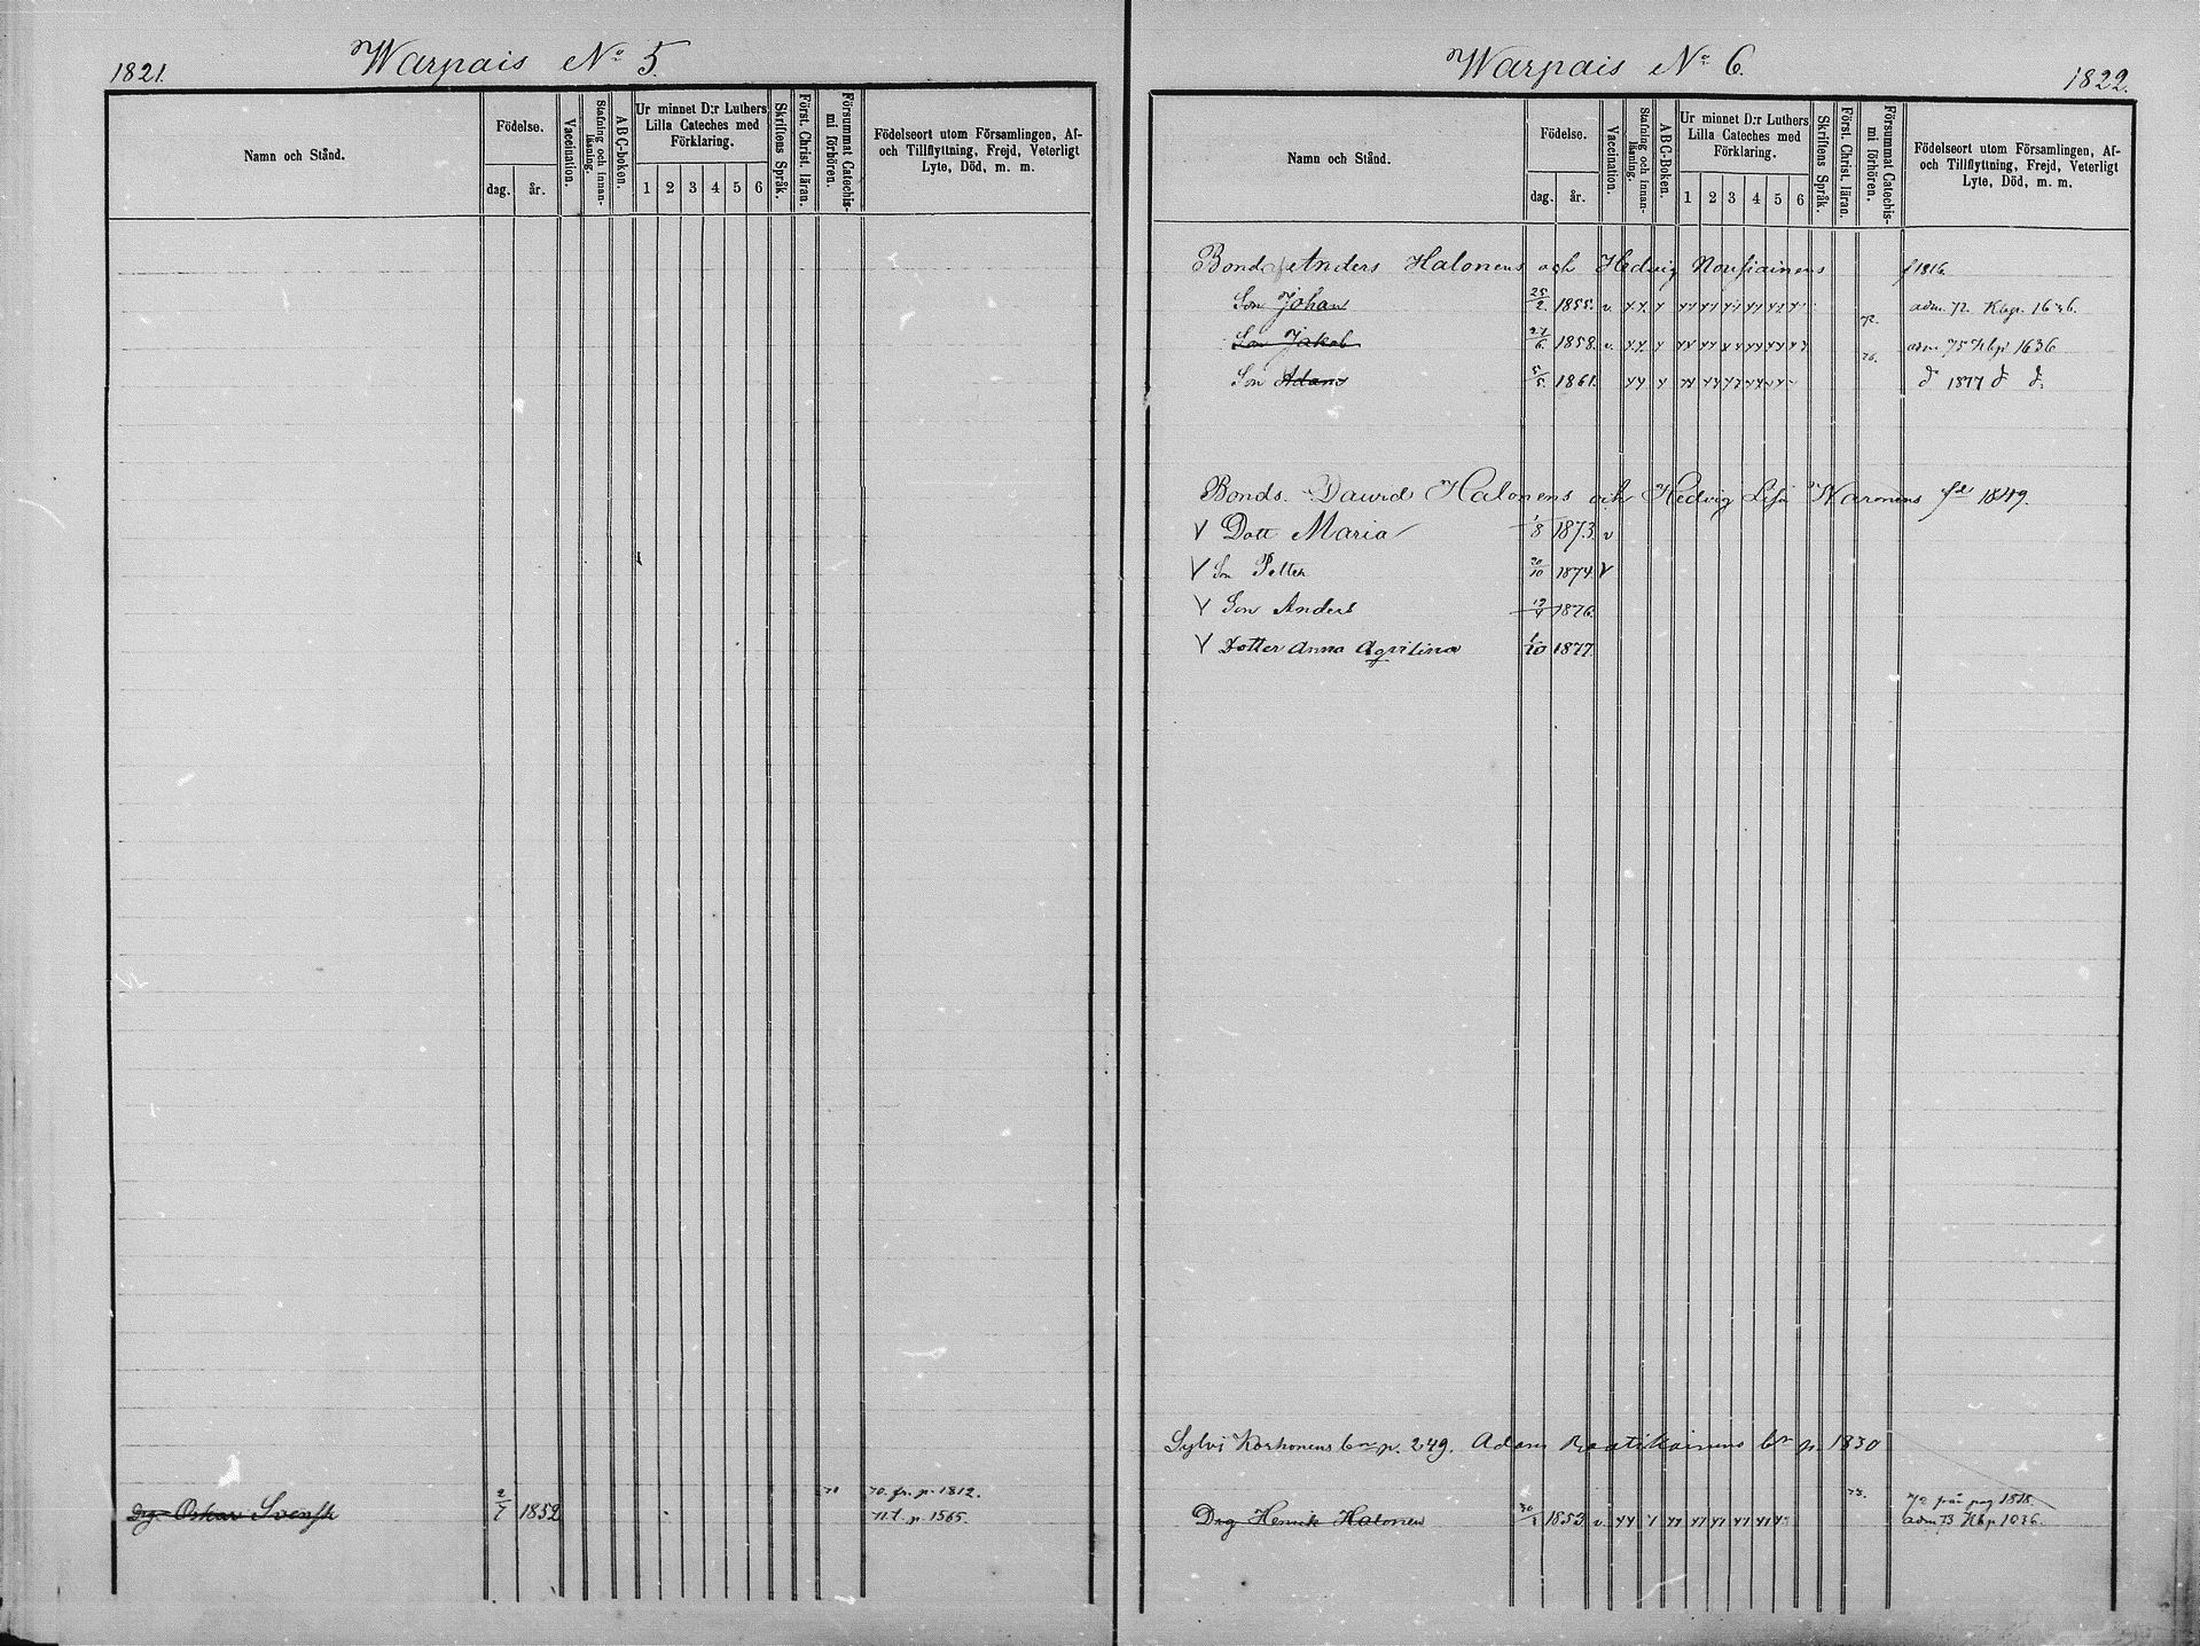 1821.
Warpais No 5.
Namn och Stånd.
Födelse.
dag.
år.
Vaccination.
Stafning och innanläsning.
ABC-boken.
Ur minnet D:r Luthers
Lilla Cateches med
Förklaring.
1 2 3 4 5 6
Skriftens Språk.
Först. Christ. läran.
Försummat Catechismi förhören.
Födelseort utom Församlingen, Af-
och Tillflyttning, Frejd, Veterligt
Lyte, Död, m. m.
70. fr. p. 1812.
Drg. Oskar Svensk 2/7 1852 71 71. t. p. 1565.
Warpais No 6.
1822.
Namn och Stånd.
Födelse.
dag.
år.
Vaccination.
Stafning och innanläsning.
ABC-Boken.
Ur minnet D:r Luthers
Lilla Cateches med
Förklaring.
1 2 3 4 5 6
Skriftens Språk.
Först. Christ. läran.
Försummat Catechismi förhören.
Födelseort utom Församlingen, Af-
och Tillflyttning, Frejd, Veterligt
Lyte, Död, m. m.
Bond. Anders Halonens och Hedvig Nousiainens f 1816
Son Johan 25/2. 1855. v. adm. 72. Kbp. 1636.
Son Jakob 27/6. 1858. v. adm. 75 Kbp 1636
Son Adam 5/5. 1861. 1877
Bonds. David Halonens och Hedvig Lisa Waronens fd 1849.
V Dott Maria 1/8 1873. v
V Son Petter 20/10 1874 V
V Son Anders 1876.
V Dotter Anna Aqvilina 1/10 1877.
Sylvi Korhonens bn p. 249. Adam Raatikainens bn p. 1830
72 från pag 1818.
Drg Henrik Halonen 1853 v. 73. adm 73 Kbp 1036.